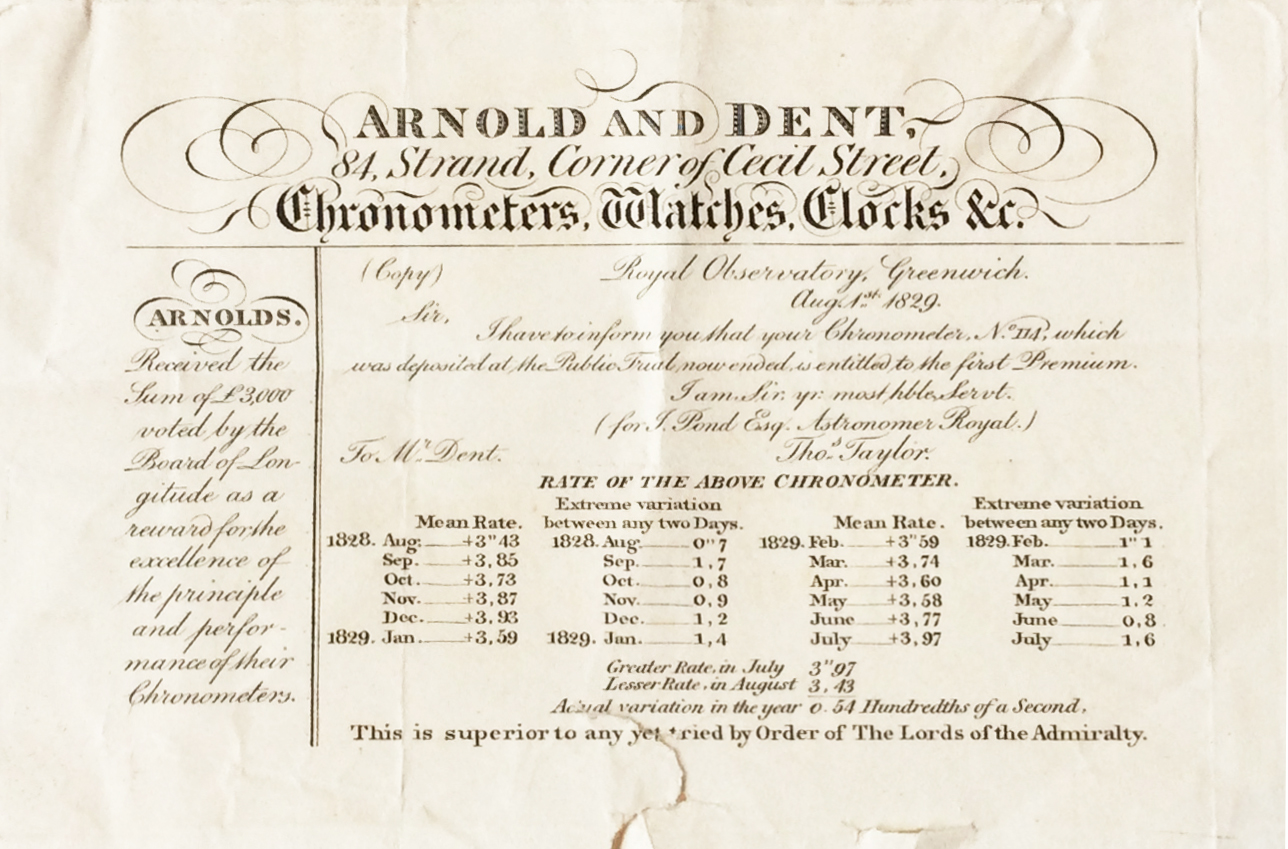 ARNOLD AND DENT,
84, Strand, Corner of Cecil Street,
Chronometers, Watches, Clocks &c.
ARNOLDS.
Received the
Sum of £3,000
voted by the
Board of Lon-
gitude as a
reward for the
excellence of
the principle
and perfor-
mance of their
Chronometers.
(Copy) Royal Observatory, Greenwich.
Aug. 1st. 1829.
Sir,
I have to inform you that your Chronometer, No. 114, which
was deposited at the Public Trial now ended, is entitled to the first Premium.
I am, Sir, yr. most hble. Servt.
(for J. Pond Esq. Astronomer Royal.)
To Mr. Dent. Thos. Taylor.
RATE OF THE ABOVE CHRONOMETER.
Extreme variation Extreme variation
Mean Rate. between any two Days. Mean Rate. between any two Days.
1828. Aug. +3"43 1828. Aug. 0"7 1829. Feb. +3"59 1829. Feb. 1"1
Sep. +3,85 Sep. 1,7 Mar. +3,74 Mar. 1,6
Oct. +3,73 Oct. 0,8 Apr. +3,60 Apr. 1,1
Nov. +3,87 Nov. 0,9 May +3,58 May 1,2
Dec. +3,93 Dec. 1,2 June +3,77 June 0,8
1829. Jan. +3,59 1829. Jan. 1,4 July +3,97 July 1,6
Greater Rate, in July 3"97
Lesser Rate, in August 3,43
Actual variation in the year 0.54 Hundredths of a Second.
This is superior to any yet tried by Order of The Lords of the Admiralty.